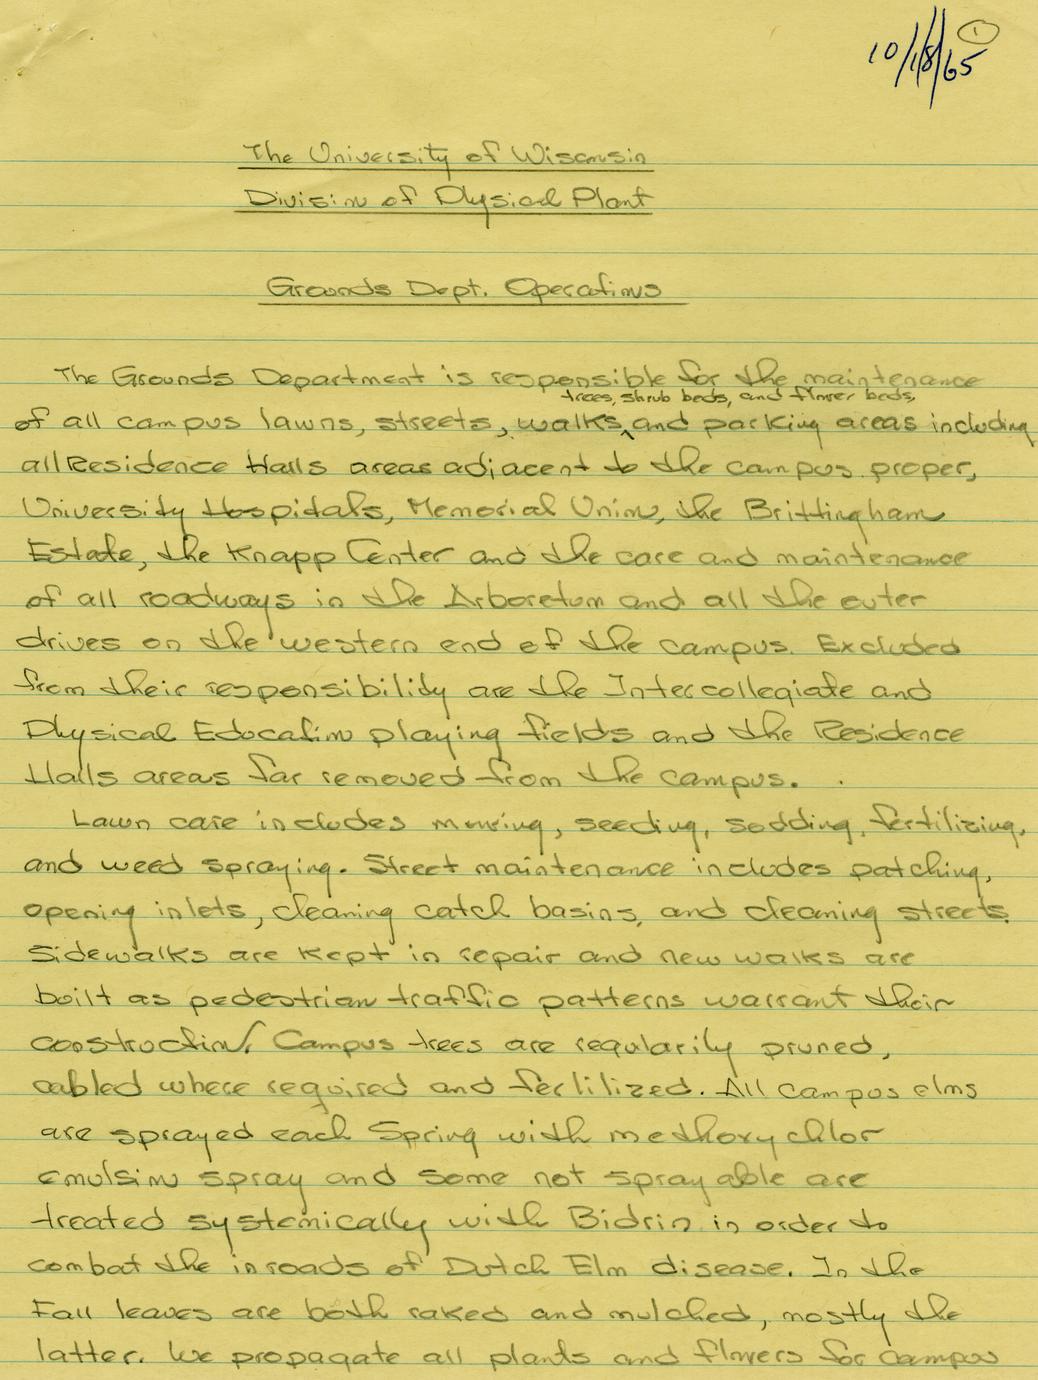 10/18/65 1
The University of Wisconsin
Division of Physical Plant
Grounds Dept. Operations
The Grounds Department is responsible for the maintenance
trees, shrub beds, and flower beds,
of all campus lawns, streets, walks, and parking areas including
all Residence Halls areas adjacent to the campus proper,
University Hospitals, Memorial Union, the Brittingham
Estate, the Knapp Center and the care and maintenance
of all roadways in the Arboretum and all the outer
drives on the western end of the campus. Excluded
from their responsibility are the Intercollegiate and
Physical Education playing fields and the Residence
Halls areas far removed from the campus.
Lawn care includes mowing, seeding, sodding, fertilizing,
and weed spraying. Street maintenance includes patching,
opening inlets, cleaning catch basins, and cleaning streets.
Sidewalks are kept in repair and new walks are
built as pedestrian traffic patterns warrant their
construction. Campus trees are regularily pruned,
cabled where required and fertilized. All campus elms
are sprayed each Spring with methoxychlor
emulsion spray and some not sprayable are
treated systemically with Bidrin in order to
combat the inroads of Dutch Elm disease. In the
Fall leaves are both raked and mulched, mostly the
latter. We propagate all plants and flowers for campus